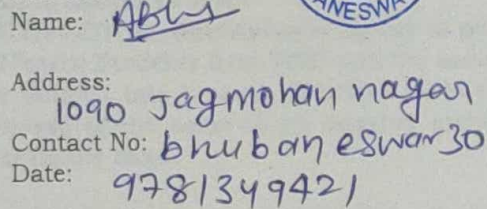 Name: Abhi
ANESWA
Address:
1090 Jagmohan nagar
Contact No: bhubaneswar 30
Date: 9781349421